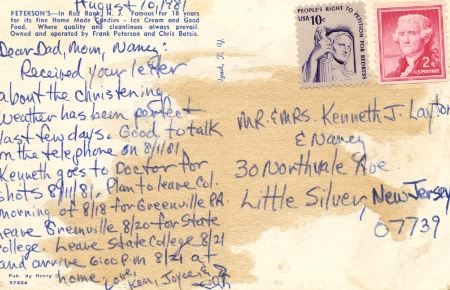 August 10, 1981
PETERSON'S— In Red Bank, N. J. Famous for 18 years
for its fine Home Made Candies - Ice Cream and Good
Food. Where quality and cleanliness always prevail.
Owned and operated by Frank Peterson and Chris Batsis.
Dear Dad, Mom, Nancy:
Received your letter
about the christening.
Weather has been perfect
last few days. Good to talk
on the telephone on 8/1/81.
Kenneth goes to Doctor for
shots 8/11/81. Plan to leave Col.
morning of 8/18 for Greenville PA.
Leave Greenville 8/20 for State
College. Leave State College 8/21
and arrive 6:00 P.M. 8/21 at
home. Love,
Ken, Joyce &
Pub. by Henry
57624
PEOPLE'S RIGHT TO
PETITION
FOR
REDRESS
US
10c
2¢
U.S. POSTAGE
MR. & MRS. Kenneth J. Layton
& Nancy
30 Northvale Ave.
Little Silver, New Jersey
07739